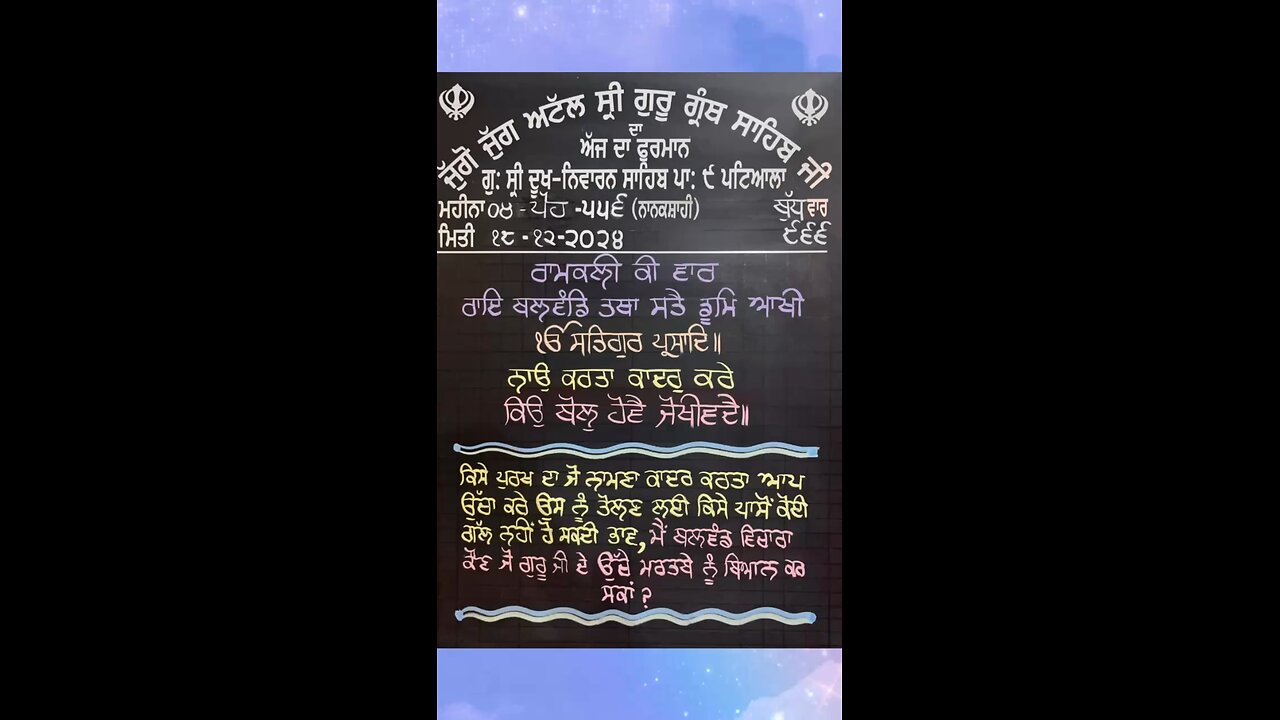 ਜੁੱਗੋ ਜੁੱਗ ਅਟੱਲ ਸ੍ਰੀ ਗੁਰੂ ਗ੍ਰੰਥ ਸਾਹਿਬ ਜੀ
ਦਾ
ਅੱਜ ਦਾ ਫੁਰਮਾਨ
ਗੁ: ਸ੍ਰੀ ਦੂਖ-ਨਿਵਾਰਨ ਸਾਹਿਬ ਪਾ: ੯ ਪਟਿਆਲਾ
ਮਹੀਨਾ ੦੪ - ਪੋਹ -੫੫੬ (ਨਾਨਕਸ਼ਾਹੀ) ਬੁੱਧ ਵਾਰ
ਮਿਤੀ ੧੮ - ੧੨-੨੦੨੪ ੯੬੬
ਰਾਮਕਲੀ ਕੀ ਵਾਰ
ਰਾਇ ਬਲਵੰਡਿ ਤਥਾ ਸਤੈ ਡੂਮਿ ਆਖੀ
ੴ ਸਤਿਗੁਰ ਪ੍ਰਸਾਦਿ॥
ਨਾਉ ਕਰਤਾ ਕਾਦਰੁ ਕਰੇ
ਕਿਉ ਬੋਲੁ ਹੋਵੈ ਜੋਖੀਵਦੈ॥
ਕਿਸੇ ਪੁਰਖ ਦਾ ਜੋ ਨਾਮਣਾ ਕਾਦਰ ਕਰਤਾ ਆਪ
ਉੱਚਾ ਕਰੇ ਉਸ ਨੂੰ ਤੋਲਣ ਲਈ ਕਿਸੇ ਪਾਸੋਂ ਕੋਈ
ਗੱਲ ਨਹੀਂ ਹੋ ਸਕਦੀ ਭਾਵ, ਮੈਂ ਬਲਵੰਡ ਵਿਚਾਰਾ
ਕੌਣ ਜੋ ਗੁਰੂ ਜੀ ਦੇ ਉੱਚੇ ਮਰਤਬੇ ਨੂੰ ਬਿਆਨ ਕਰ
ਸਕਾਂ ?